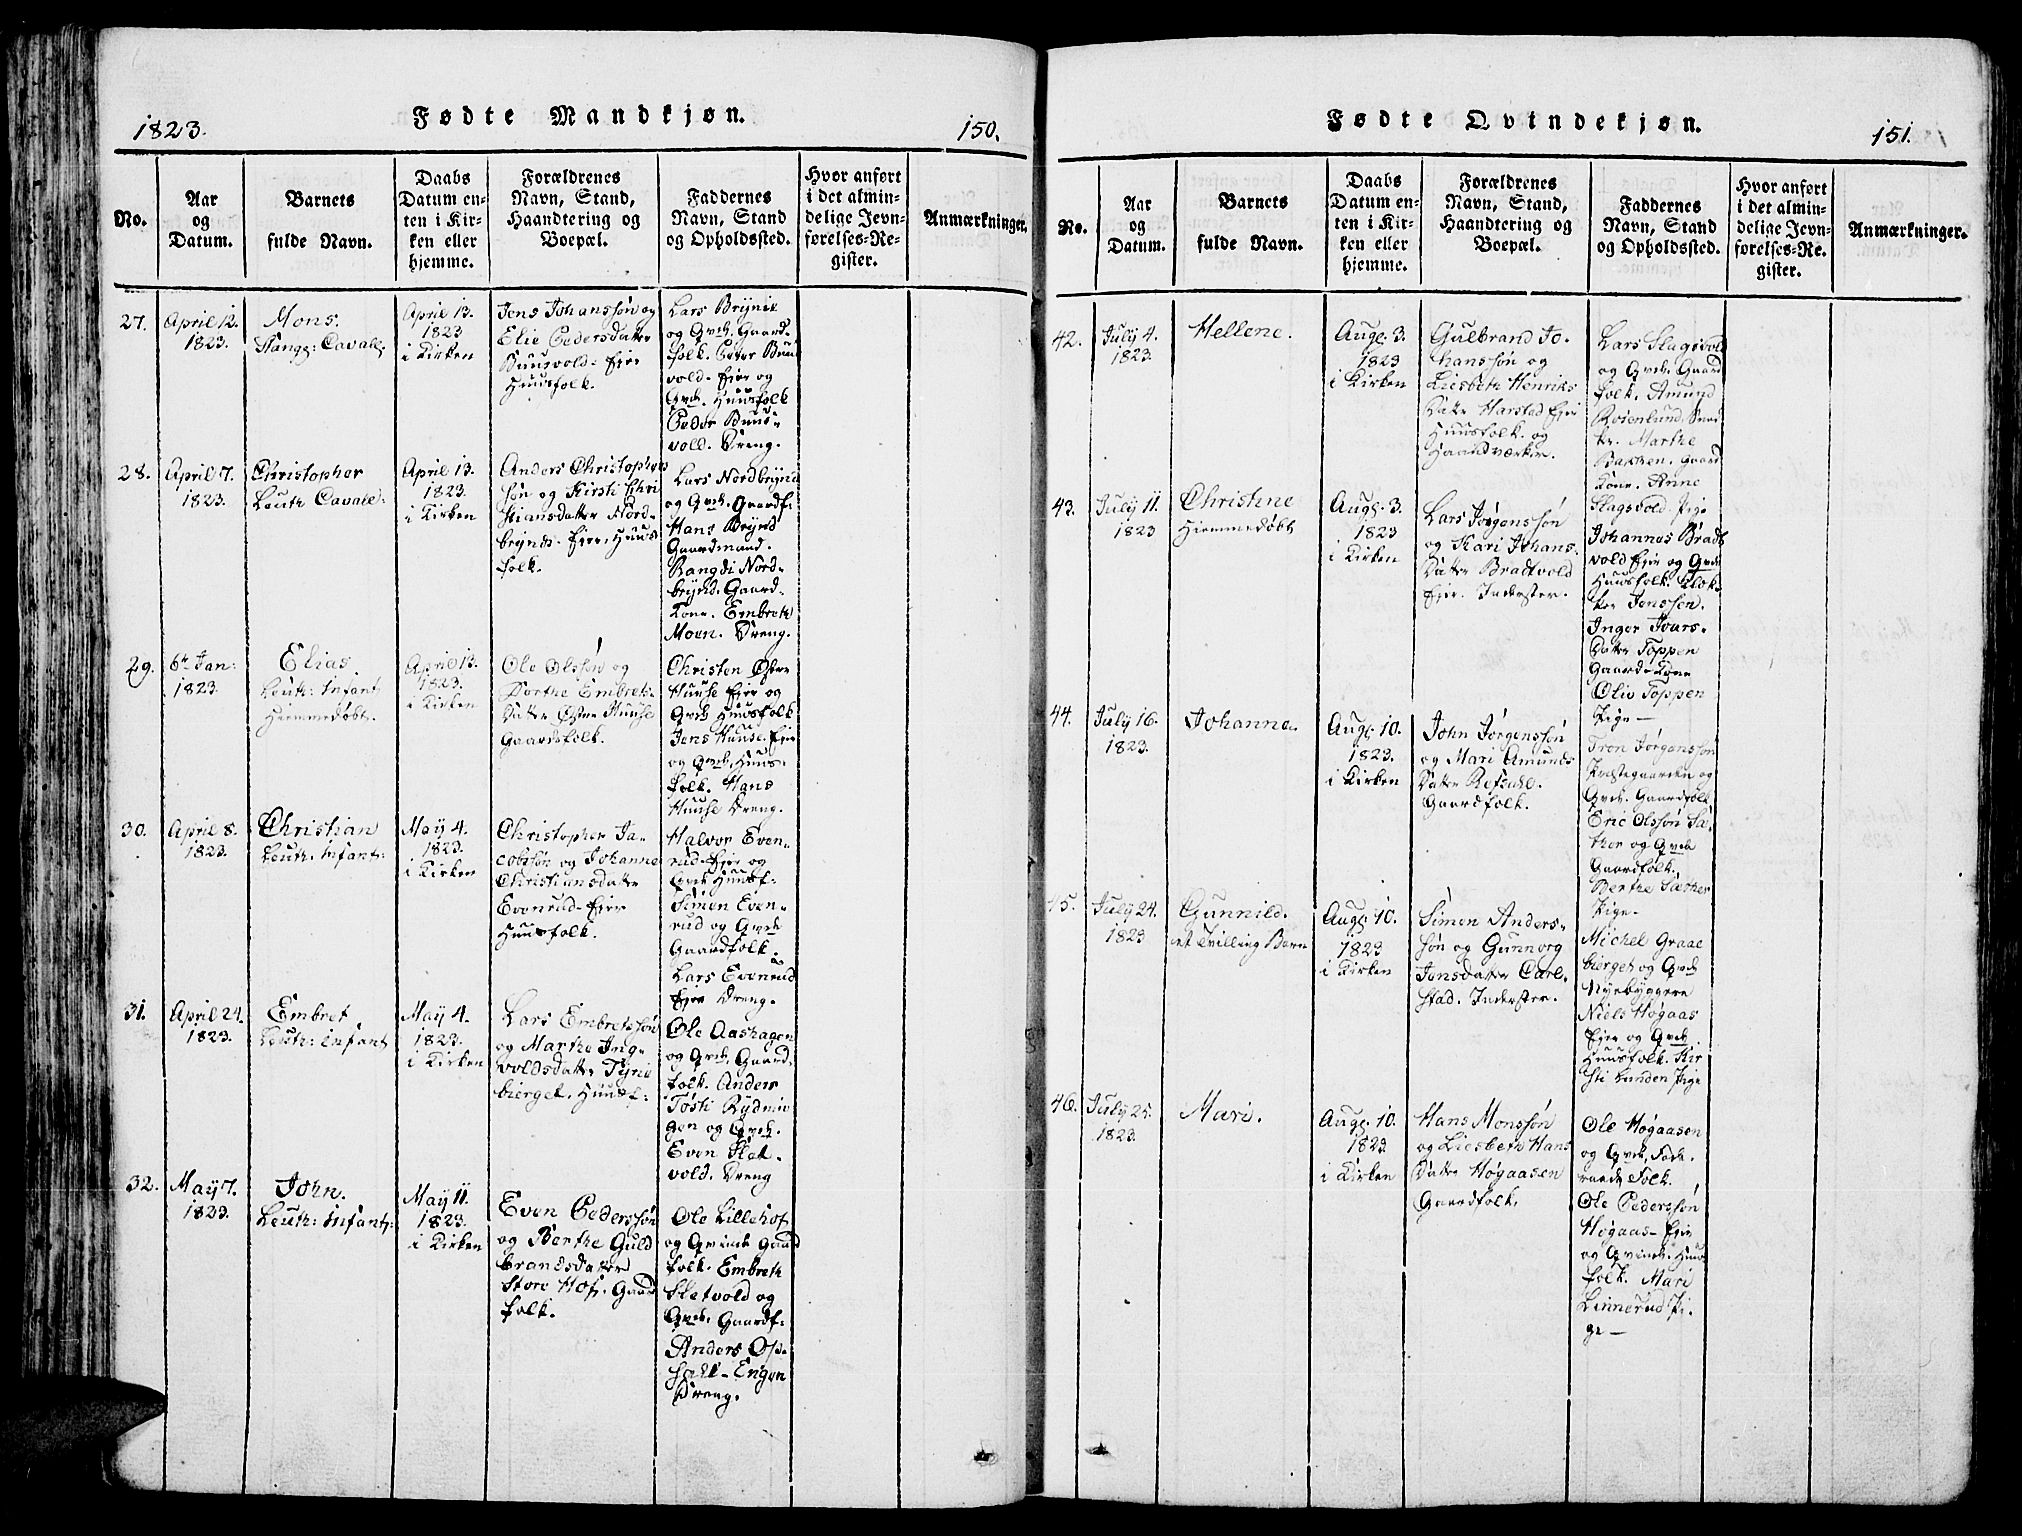 1823.
Fødte Mandkjøn.
150.
No.
Aar
og
Datum.
Barnets
fulde Navn.
Daabs
Datum en-
ten i Kir-
ken eller
hjemme.
Forældrenes
Navn, Stand,
Haandtering og
Boepæl.
Faddernes
Navn, Stand
og Opholdssted.
Hvor anført
i det almin-
delige Jevn-
førelses-Re-
gister.
Anmærkninger.
27.
April 12.
1823.
Mons.
Stange: Cavall:
April 13.
1823
i Kirken
Jens Johanssøn og
Elie Pedersdatter
Buusvold- Eier
Huusfolk.
Lars Brynie
og Qvd. Gaard-
folk. Peter Buus
vold- Eier og
Qvd. Huusfolk
Peder Buus-
vold. Dreng.
28.
April 7.
1823.
Christopher
Leuth. Cavall:
April 13.
1823.
i Kirken
Anders Christophers
søn og Kirsti Chri
stiansdatter Nord-
brynd- Eier, Huus
folk.
Lars Nordbrynd
og Qvd. Gaardf:
Hans Brynd
Gaardmand.
Rangdi Nord-
brynd. Gaard-
kone. Embreth
Moen. Dreng.
29.
6te Jan:
1823.
Elias.
Leuth: Infant:
Hiemmedøbt.
April 13.
1823.
i Kirken
Ole Olssøn og
Dorthe Embrets-
datter Østre Huuse
Gaardsfolk.
Christen Østre
Huuse Eier og
Qvd. Huusfolk
Jens Huuse. Eier
og Qvd. Huus-
folk. Hans
Huuse Dreng.
30.
April 8.
1823.
Christian
Leuth. Infant:
May 4.
1823.
i Kirken
Christopher Ja-
cobssøn og Johanne
Christiansdatter
Evenrud- Eier
Huusfolk.
Halvor Even-
rud- Eier og
Qvd Huusf:
Simen Even-
rud og Qvd
Gaardfolk.
Lars Evenrud
Eier Dreng.
31.
April 24.
1823.
Embret
Leuth: Infant
May 4.
1823.
i Kirken
Lars Embretssøn
og Marthe Ing-
voldsdatter Tyrie
bierget. Huusf:
Ole Aashagen
og Qvd. Gaard-
folk. Anders
Tosti Rydnin
gen og Qvd.
Even Slet
vold. Dreng
32.
May 7.
1823.
John.
Leuth: Infant:
May 11.
1823.
i Kirken
Even Pederssøn
og Berthe Guld
brandsdatter
Store Hof. Gaard
folk.
Ole Lillehof
og Qvinde Gaard
folk. Embreth
Sletvold og
Qvd. Gaardf:
Anders Op-
sahl- Engen
Dreng.
Fødte Qvindekjøn.
151.
No.
Aar
og
Datum.
Barnets
fulde Navn.
Daabs
Datum en-
ten i Kir-
ken eller
hjemme.
Forældrenes
Navn, Stand,
Haandtering og
Boepæl.
Faddernes
Navn, Stand
og Opholdssted.
Hvor anført
i det almin-
delige Jevn-
førelses-Re-
gister.
Anmærkninger.
42.
July 4.
1823.
Hellene.
Aug. 3.
1823
i Kirken
Gulbrand Jo-
hanssøn og
Liesbeth Henriks
Datter Harstad Eier
Huusfolk. og
Haandværker.
Lars Slagsvold
og Qvd. Gaard
folk. Amund
Marthe
Bakken. Gaard
kone. Anne
Slagsvold. Pige
43.
July 11.
1823
Christine
Hiemmedøbt
Aug. 3.
1823
i Kirken
Lars Jørgenssøn
og Kari Johans-
Datter Bradtvold
Eier. Inderster.
Johannes Bradt
vold Eier og Qvd
Huusfolk. Klok-
ker Jenssen.
Inger Jours-
Datter Toppen
Gaard-Kone
Oliv Toppen
Pige-
44.
July 16.
1823.
Johanne.
Aug. 10.
1823.
i Kirken
John Jørgenssøn
og Mari Amunds
Datter Refsahl.
Gaardfolk.
Tron Jørgenssøn
Præstegaarden og
Qvd. Gaardfolk
Eric Olssøn Sæ-
ther og Qvd
Gaardfolk.
Berthe Sæther
Pige.
45.
July 24.
1823
Gunnild.
et Tvilling Barn
Aug. 10.
1823
i Kirken
Simen Anders-
søn og Gunnorg
Jensdatter Carl-
stad. Inderster.
Michel Graae
bierget og Qvd
Nyebyggere
Niels Høgaas
Eier og Qvd
Huusfolk. Kir
sti Lunden Pige
46.
July 25.
1823.
Mari.
Aug. 10.
1823
i Kirken
Hans Monssøn
og Liesbeth Hans
Datter Høgaasen
Gaardfolk.
Ole Høgaasen
og Qvd, Føde-
raads Folk.
Ole Pederssøn
Høgaas- Eier
og Qvinde. Huus
folk. Mari
Linnerud Pi-
ge-